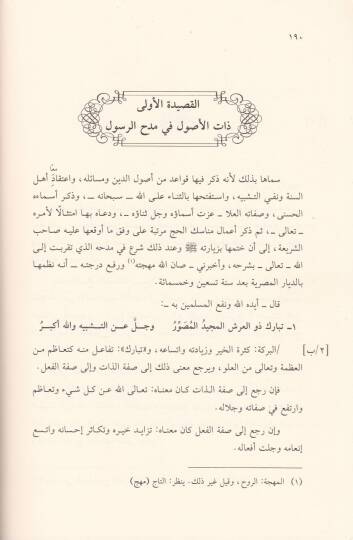 ١٩٠
القصيدة الأولى
ذات الأصول في مدح الرسول
سماها بذلك لأنه ذكر فيها قواعد من أصول الدين ومسائله، واعتقاد أهل
السنة ونفي التشبيه، واستفتحها بالثناء على الله ـ سبحانه ـ، وذكر أسماءه
الحسنى، وصفاته العلا ـ عزت أسماؤه وجل ثناؤه ـ، ودعاه بها امتثالًا لأمره
ـ تعالى ـ، ثم ذكر أعمال مناسك الحج مرتبة على وفق ما أوقعها عليه صاحب
الشريعة، إلى أن ختمها بزيارته ﷺ وعند ذلك شرع في مدحه الذي تقربت إلى
الله ـ تعالى ـ بشرحه، وأخبرني ـ صان الله مهجته(١) ورفع درجته ـ أنه نظمها
بالديار المصرية بعد سنة تسعين وخمسمائة.
قال ـ أيده الله ونفع المسلمين به ـ:
١ـ تبارك ذو العرش المجيدُ المُصَوِّرُ وجلَّ عن التشبيه والله أكبرُ
[٢/ب] /البركة: كثرة الخير وزيادته واتساعه، و«تبارك»: تفاعل منه كتعاظم من
العظمة وتعالى من العلو، ويرجع معنى ذلك إلى صفة الذات وإلى صفة الفعل.
فإن رجع إلى صفة الذات كان معناه: تعالى الله عن كل شيء وتعاظم
وارتفع في صفاته وجلاله.
وإن رجع إلى صفة الفعل كان معناه: تزايد خيره وتكاثر إحسانه واتسع
إنعامه وجلت أفعاله.
(١) المهجة: الروح، وقيل غير ذلك. ينظر: التاج (مهج)